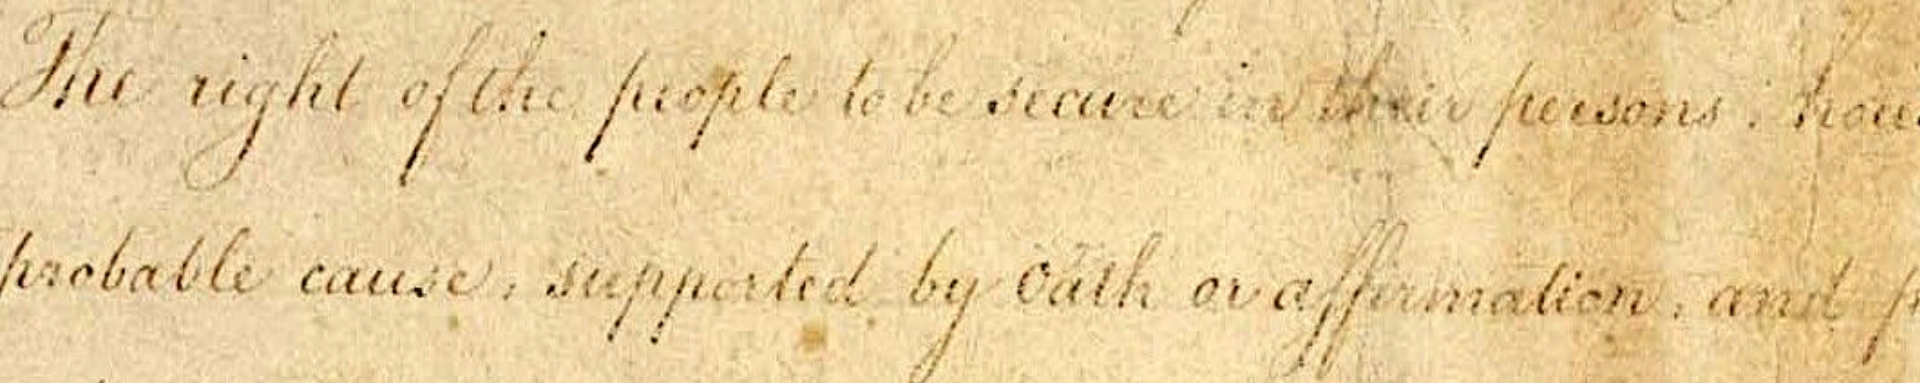 The right of the people to be secure in their persons, hous
probable cause, supported by Oath or affirmation, and p